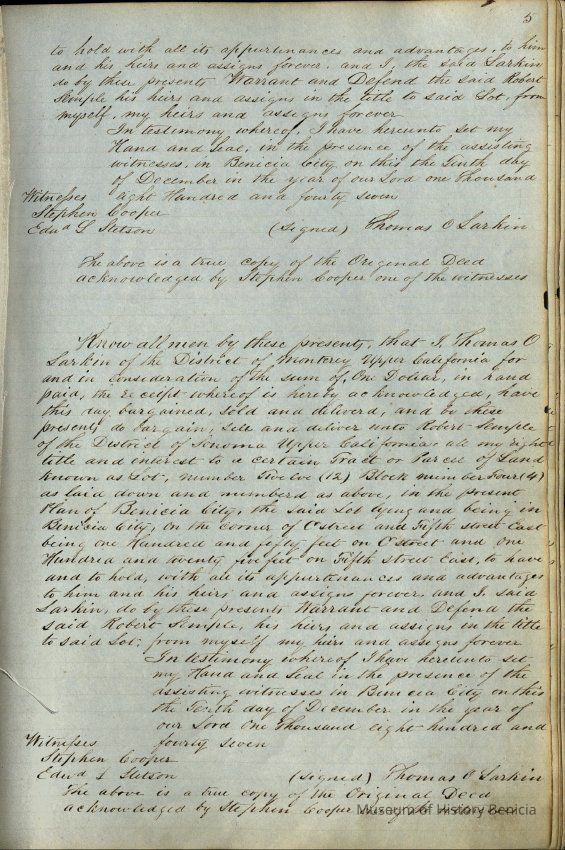 5
to hold with all its appurtenances and advantages, to him
and his heirs and assigns forever, and I, the said Larkin
do by these presents Warrant and Defend the said Robert
Semple his heirs and assigns in the title to said Lot, from
myself, my heirs and assigns forever
In testimony whereof, I have hereunto set my
Hand and Seal, in the presence of the assisting
witnesses, in Benicia City on this the Tenth day
of December in the year of our Lord one Thousand
Witnesses eight Hundred and fourty seven
Stephen Cooper
Edwd L Stetson (Signed) Thomas O Larkin
The above is a true copy of the Original Deed
acknowledged by Stephen Cooper one of the witnesses
Know all men by these presents, that I, Thomas O
Larkin of the District of Monterey Upper California for
and in consideration of the sum of, One Dollar, in hand
paid, the receipt whereof is hereby acknowledged, have
this day bargained, Sold and deliverd, and by these
presents do bargain, sell and deliver unto Robert Semple
of the District of Sonoma Upper California all my right
title and interest to a certain Tract or Parcel of Land
known as Lot, number Twelve (12) Block number Four (4)
as laid down and numberd as above, in the present
Plan of Benicia City, the said Lot lying and being in
Benicia City, on the corner of C street and Fifth street East
being one Hundred and fifty feet on C street and one
Hundred and twenty five feet on Fifth street East, to have
and to hold, with all its appurtenances and advantages
to him and his heirs and assigns forever and I said
Larkin, do by these presents Warrant and Defend the
said Robert Semple, his heirs and assigns in the title
to said Lot; from myself my heirs and assigns forever
In testimony whereof I have hereunto set
my Hand and Seal in the presence of the
assisting witnesses in Benicia City on this
the Tenth day of December in the year of
our Lord One Thousand eight hundred and
Witnesses fourty seven
Stephen Cooper
Edwd L Stetson (Signed) Thomas O Larkin
The above is a true copy of the Original Deed
acknowledged by Stephen Cooper
Museum of History Benicia